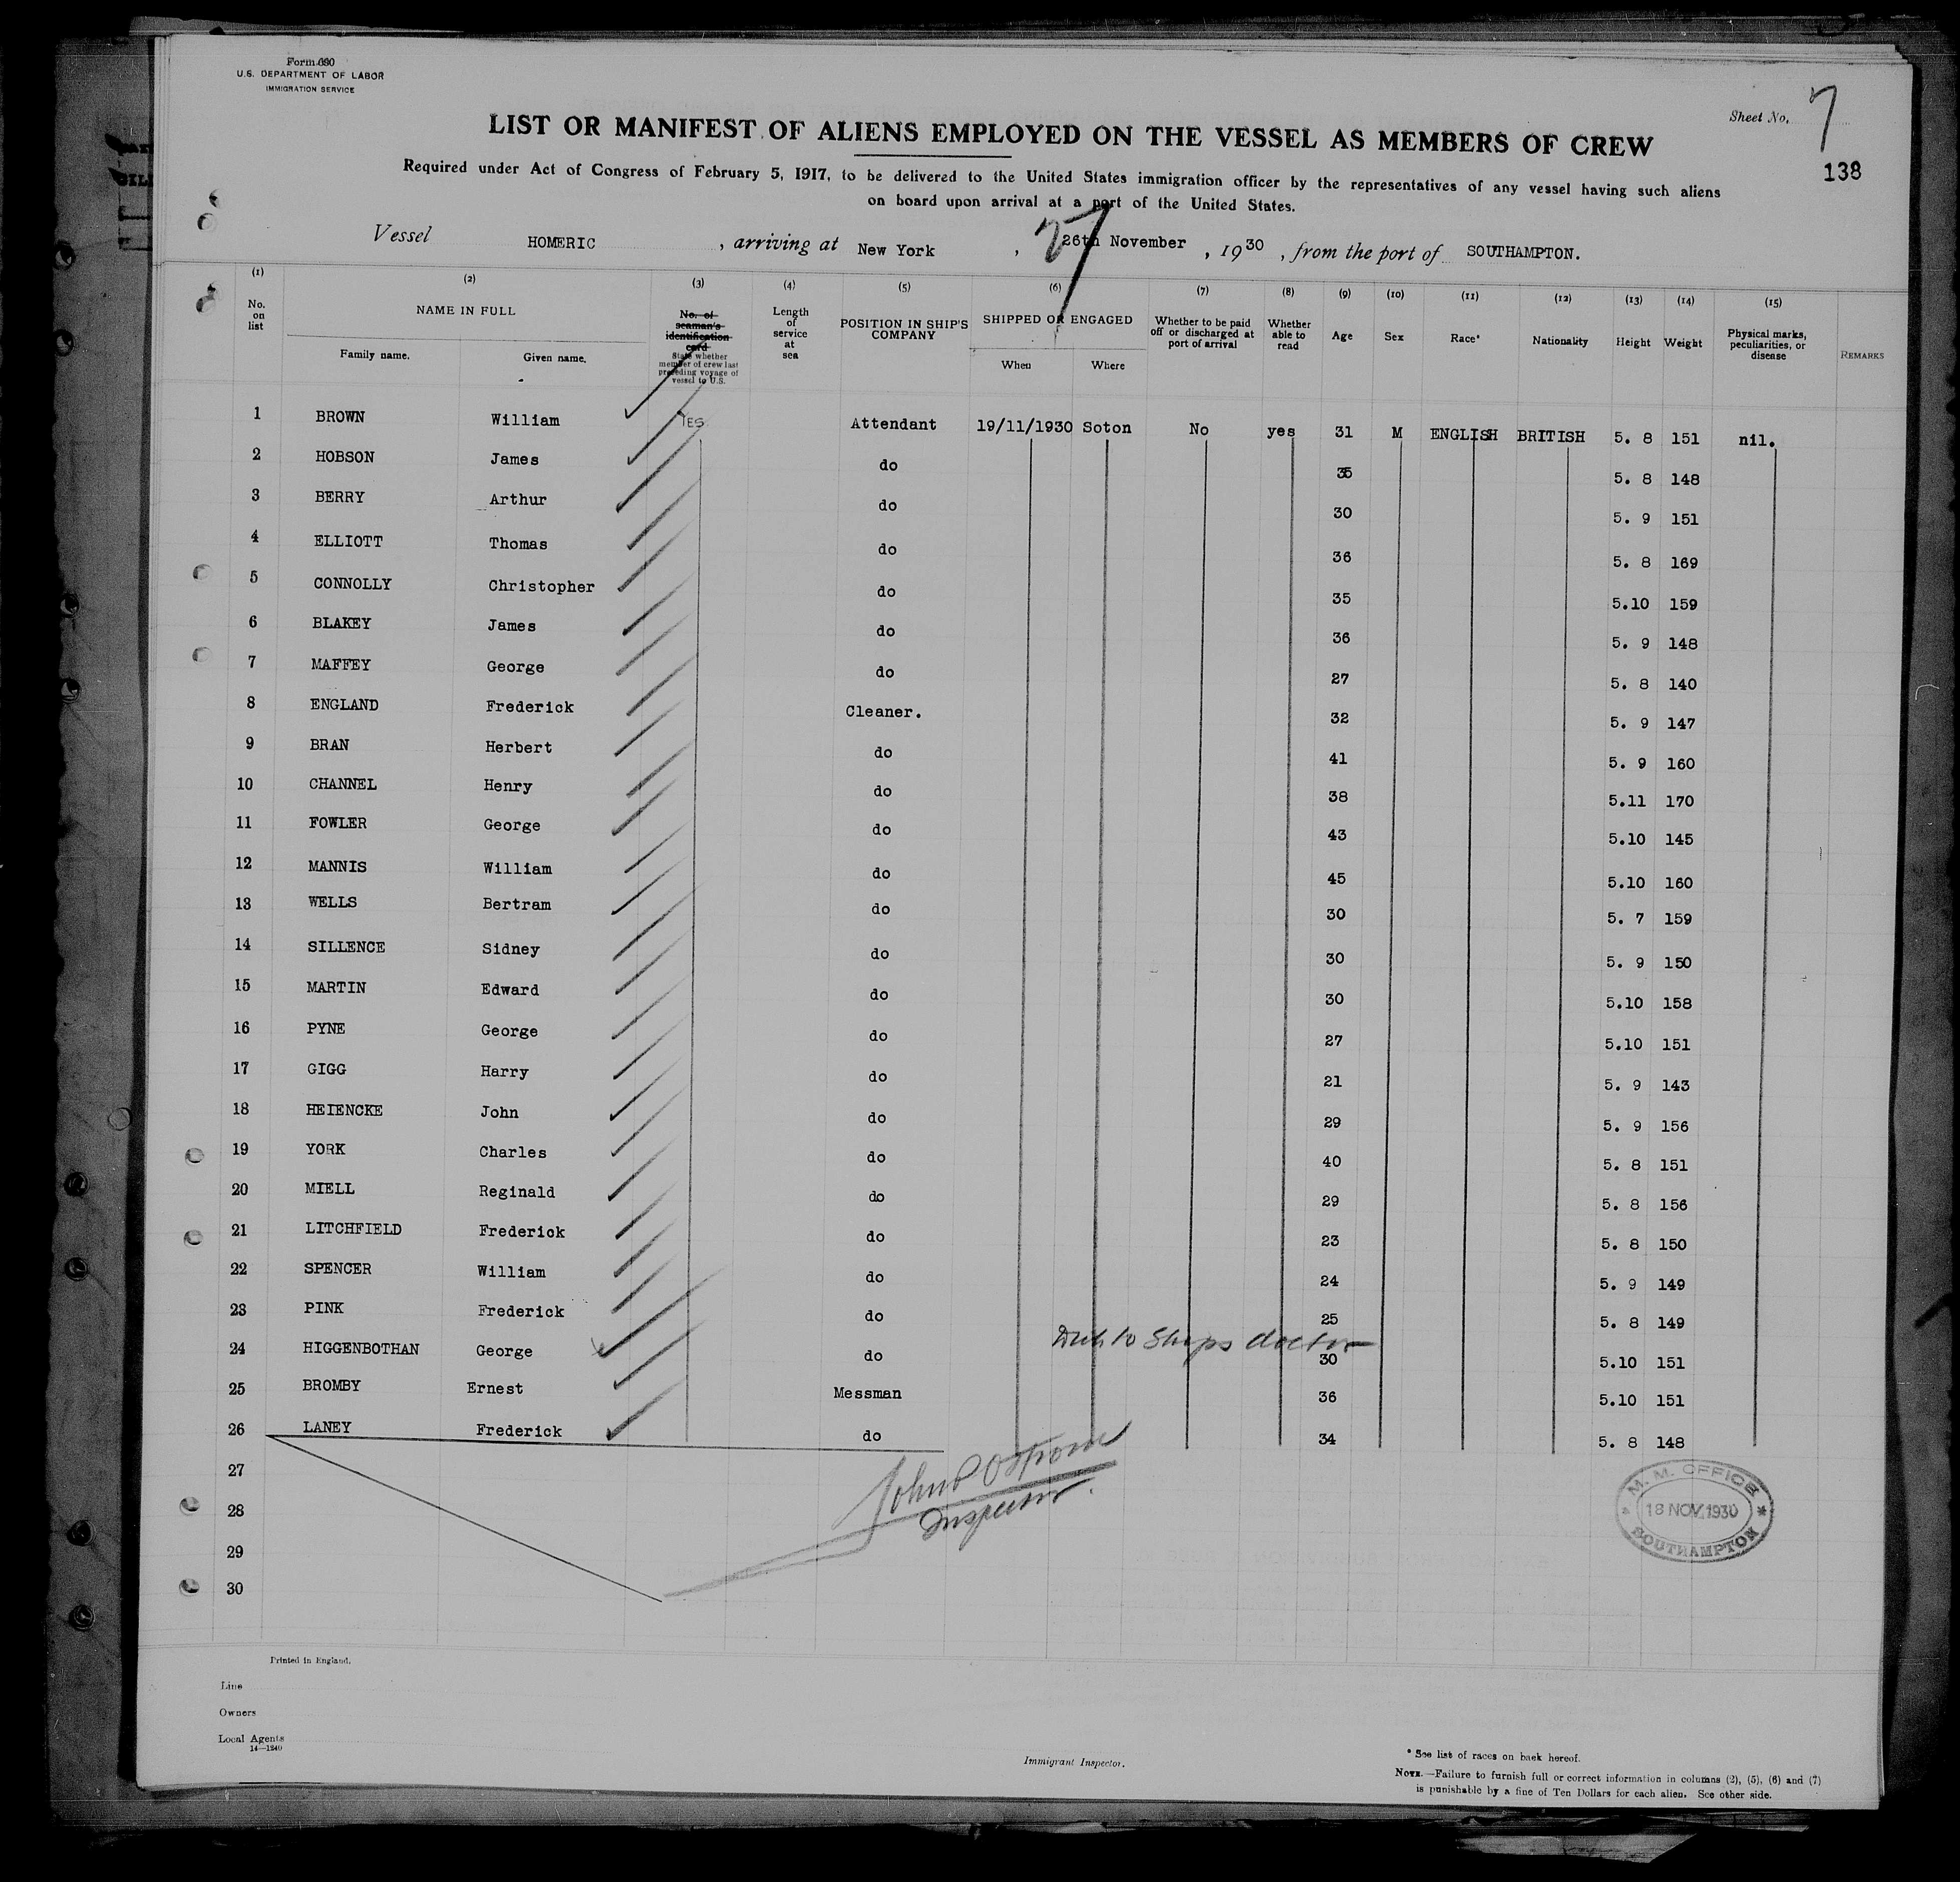 Form 680
U.S. DEPARTMENT OF LABOR
IMMIGRATION SERVICE
Sheet No. 7
LIST OR MANIFEST OF ALIENS EMPLOYED ON THE VESSEL AS MEMBERS OF CREW
138
Required under Act of Congress of February 5, 1917, to be delivered to the United States immigration officer by the representatives of any vessel having such aliens
on board upon arrival at a port of the United States.
Vessel HOMERIC, arriving at New York, 27 26th November, 1930, from the port of SOUTHAMPTON.
(1) (2) (3) (4) (5) (6) (7) (8) (9) (10) (11) (12) (13) (14) (15)
No. on list NAME IN FULL Family name. Given name. No. of seaman's identification card State whether member of crew last preceding voyage of vessel to U.S. Length of service at sea POSITION IN SHIP'S COMPANY SHIPPED OR ENGAGED When Where Whether to be paid off or discharged at port of arrival Whether able to read Age Sex Race* Nationality Height Weight Physical marks, peculiarities, or disease REMARKS
1 BROWN William YES Attendant 19/11/1930 Soton No yes 31 M ENGLISH BRITISH 5. 8 151 nil.
2 HOBSON James do 35 5. 8 148
3 BERRY Arthur do 30 5. 9 151
4 ELLIOTT Thomas do 36 5. 8 169
5 CONNOLLY Christopher do 35 5.10 159
6 BLAKEY James do 36 5. 9 148
7 MAFFEY George do 27 5. 8 140
8 ENGLAND Frederick Cleaner. 32 5. 9 147
9 BRAN Herbert do 41 5. 9 160
10 CHANNEL Henry do 38 5.11 170
11 FOWLER George do 43 5.10 145
12 MANNIS William do 45 5.10 160
13 WELLS Bertram do 30 5. 7 159
14 SILLENCE Sidney do 30 5. 9 150
15 MARTIN Edward do 30 5.10 158
16 PYNE George do 27 5.10 151
17 GIGG Harry do 21 5. 9 143
18 HEIENCKE John do 29 5. 9 156
19 YORK Charles do 40 5. 8 151
20 MIELL Reginald do 29 5. 8 156
21 LITCHFIELD Frederick do 23 5. 8 150
22 SPENCER William do 24 5. 9 149
23 PINK Frederick do 25 5. 8 149
24 HIGGENBOTHAN George do to Ships doctor 30 5.10 151
25 BROMBY Ernest Messman 36 5.10 151
26 LANEY Frederick do 34 5. 8 148
27
28
29
30
John P
Inspector.
M. M. OFFICE
18 NOV. 1930
SOUTHAMPTON
Printed in England.
Line
Owners
Local Agents
14—1240
Immigrant Inspector.
* See list of races on back hereof.
NOTE.—Failure to furnish full or correct information in columns (2), (5), (6) and (7)
is punishable by a fine of Ten Dollars for each alien. See other side.